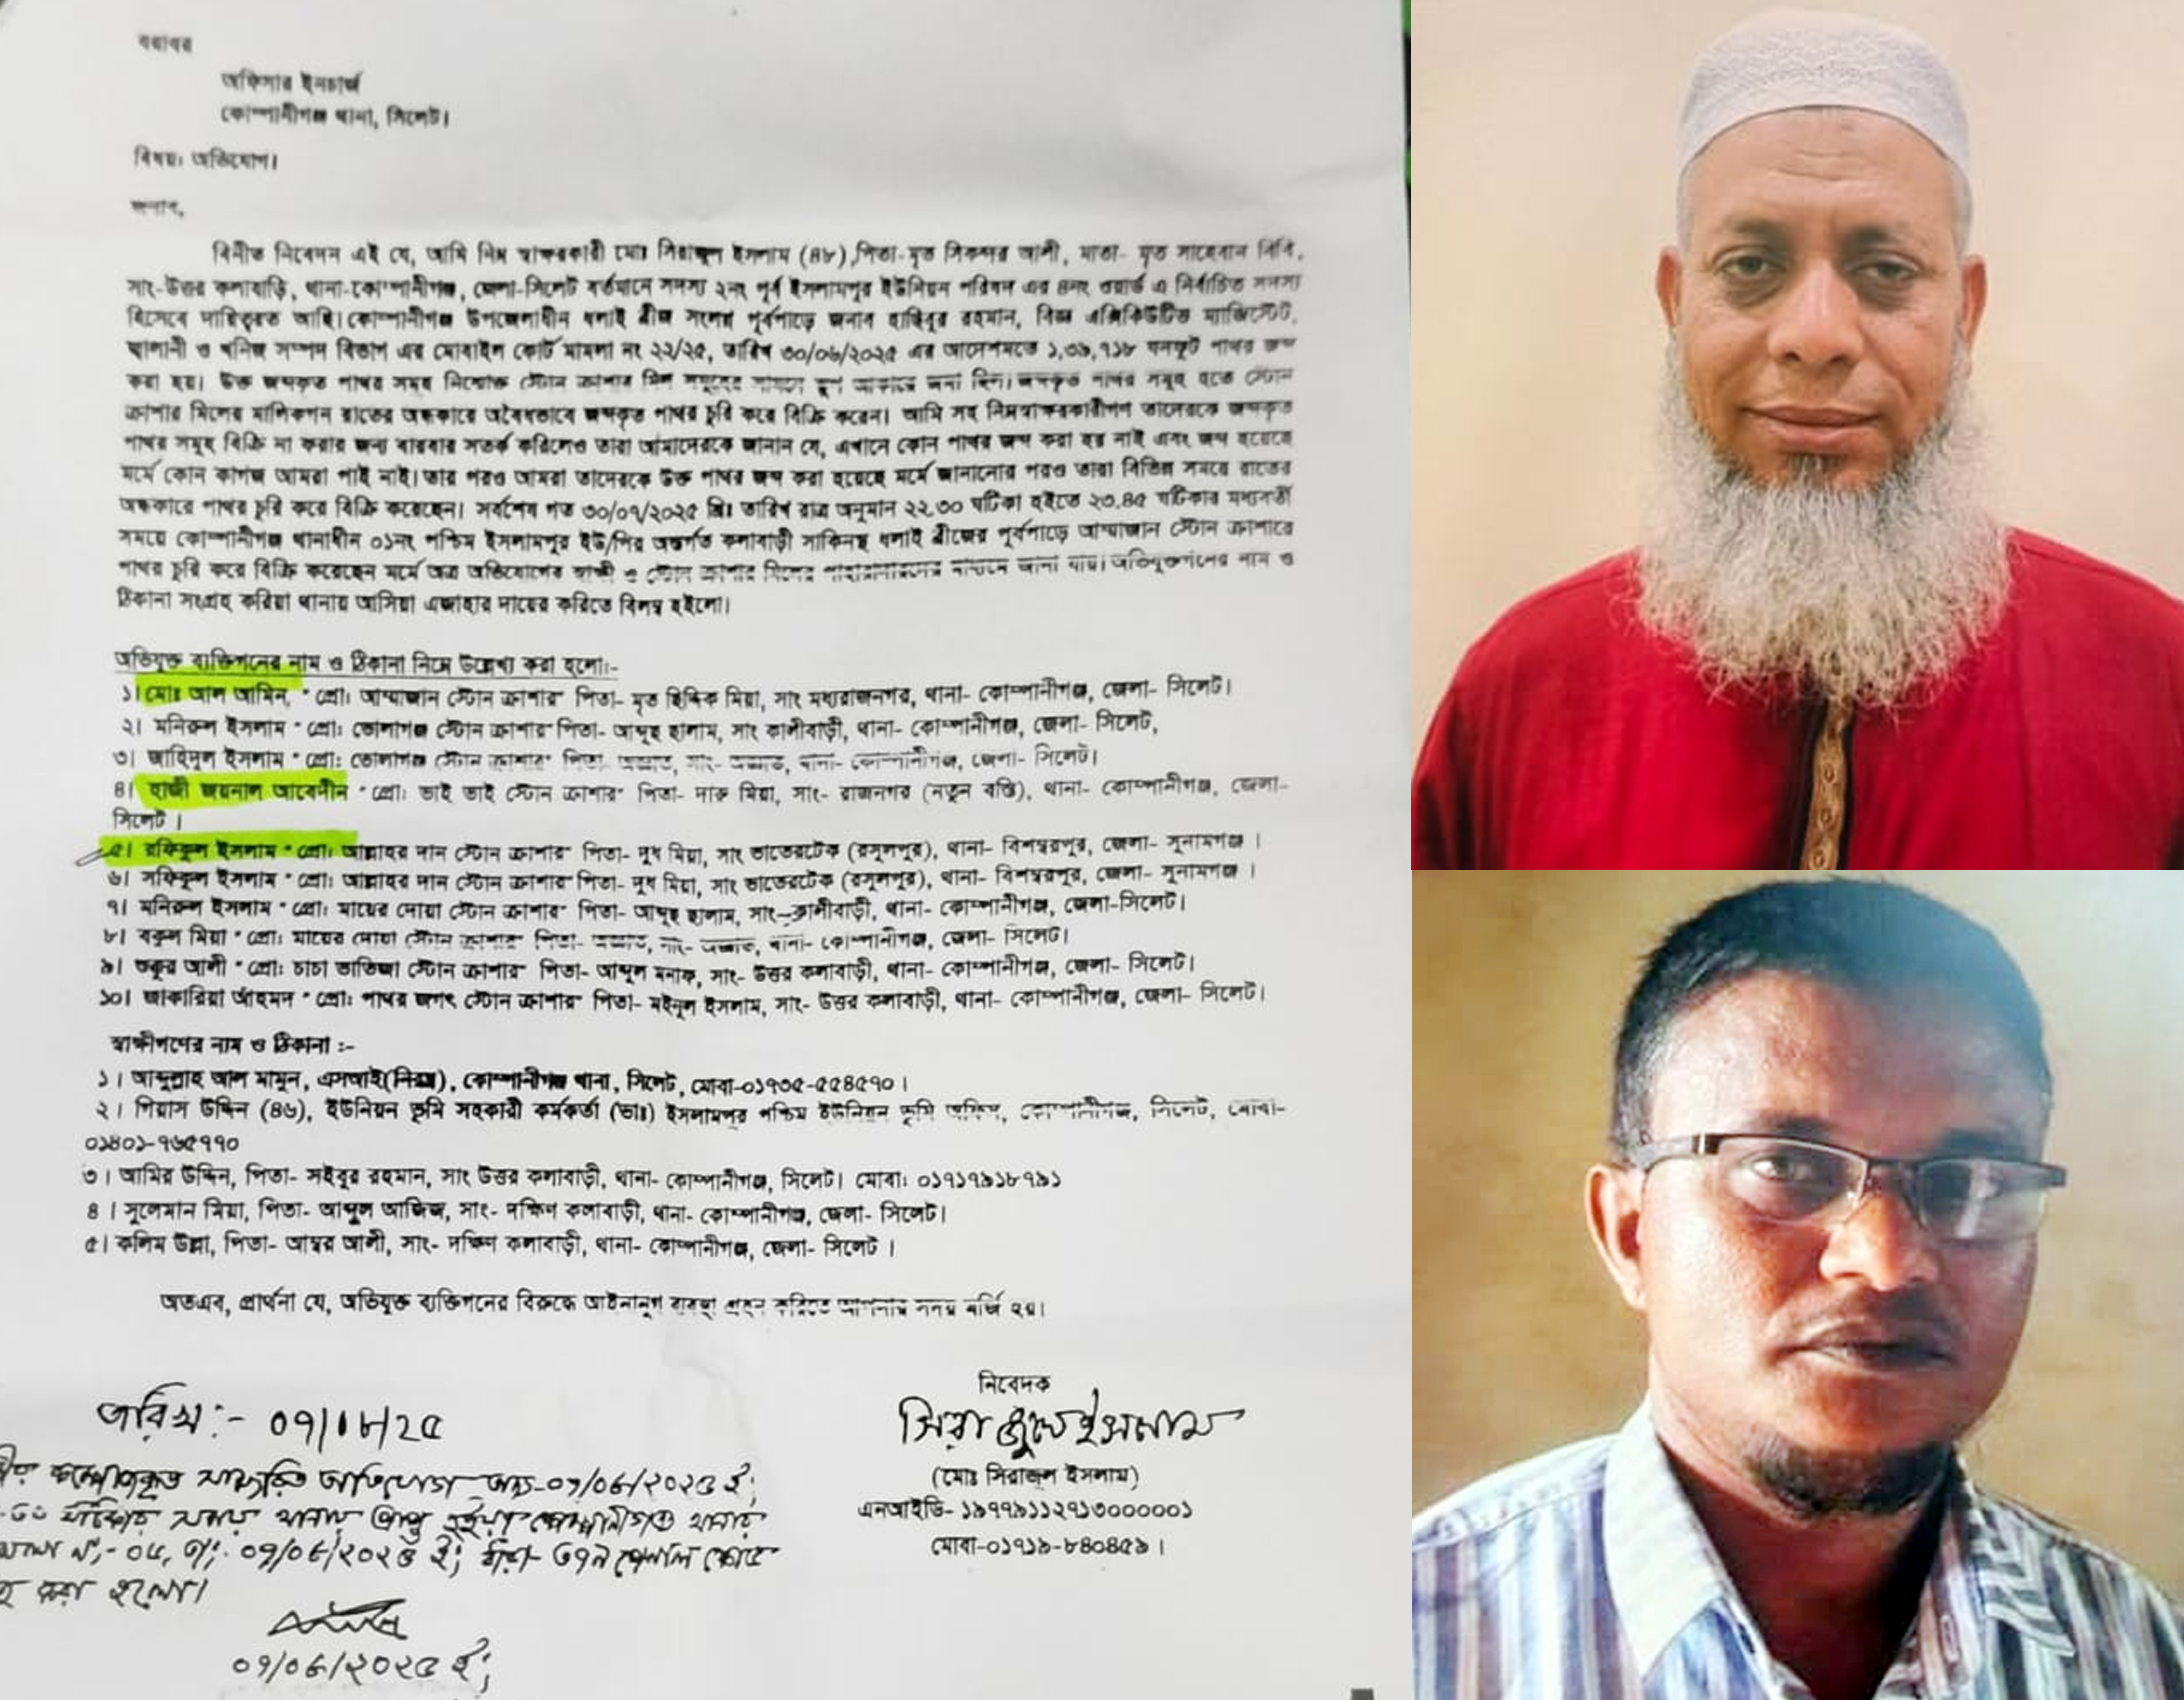 বরাবর
অফিসার ইনচার্জ
কোম্পানীগঞ্জ থানা, সিলেট।
বিষয়: অভিযোগ।
জনাব,
বিনীত নিবেদন এই যে, আমি নিম্ন স্বাক্ষরকারী মোঃ সিরাজুল ইসলাম (৪৮),পিতা-মৃত সিকন্দর আলী, মাতা- মৃত সাহেবান বিবি,
সাং-উত্তর কলাবাড়ি, থানা-কোম্পানীগঞ্জ, জেলা-সিলেট বর্তমানে সদস্য ২নং পূর্ব ইসলামপুর ইউনিয়ন পরিষদ এর ৪নং ওয়ার্ড এ নির্বাচিত সদস্য
হিসেবে দায়িত্বরত আছি। কোম্পানীগঞ্জ উপজেলাধীন ধলাই ব্রীজ সংলগ্ন পূর্বপাড়ে জনাব হাবিবুর রহমান, বিজ্ঞ এক্সিকিউটিভ ম্যাজিস্ট্রেট,
জ্বালানী ও খনিজ সম্পদ বিভাগ এর মোবাইল কোর্ট মামলা নং ২২/২৫, তারিখ ৩০/০৬/২০২৫ এর আদেশমতে ১,৩৯,৭১৮ ঘনফুট পাথর জব্দ
করা হয়। উক্ত জব্দকৃত পাথর সমূহ নিম্মোক্ত স্টোন ক্রাশার মিল সমূহের সামনে স্তুপ আকারে জমা ছিল। জব্দকৃত পাথর সমূহ হতে স্টোন
ক্রাশার মিলের মালিকগন রাতের অন্ধকারে অবৈধভাবে জব্দকৃত পাথর চুরি করে বিক্রি করেন। আমি সহ নিম্নস্বাক্ষরকারীগণ তাদেরকে জব্দকৃত
পাথর সমূহ বিক্রি না করার জন্য বারবার সতর্ক করিলেও তারা আমাদেরকে জানান যে, এখানে কোন পাথর জব্দ করা হয় নাই এবং জব্দ হয়েছে
মর্মে কোন কাগজ আমরা পাই নাই। তার পরও আমরা তাদেরকে উক্ত পাথর জব্দ করা হয়েছে মর্মে জানানোর পরও তারা বিভিন্ন সময়ে রাতের
অন্ধকারে পাথর চুরি করে বিক্রি করেছেন। সর্বশেষ গত ৩০/০৭/২০২৫ খ্রিঃ তারিখ রাত্র অনুমান ২২.৩০ ঘটিকা হইতে ২৩.৪৫ ঘটিকার মধ্যবর্তী
সময়ে কোম্পানীগঞ্জ থানাধীন ০১নং পশ্চিম ইসলামপুর ইউ/পির অন্তর্গত কলাবাড়ী সাকিনস্থ ধলাই ব্রীজের পূর্বপাড়ে আম্মাজান স্টোন ক্রাশারে
পাথর চুরি করে বিক্রি করেছেন মর্মে অত্র অভিযোগের স্বাক্ষী ও স্টোন ক্রাশার মিলের পাহারাদারদের মাধ্যমে জানা যায়। অভিযুক্তগনের নাম ও
ঠিকানা সংগ্রহ করিয়া থানায় আসিয়া এজাহার দায়ের করিতে বিলম্ব হইলো।
অভিযুক্ত ব্যক্তিগনের নাম ও ঠিকানা নিম্নে উল্লেখ্য করা হলো:-
১। মোঃ আল আমিন, "প্রো: আম্মাজান স্টোন ক্রাশার" পিতা- মৃত ছিদ্দিক মিয়া, সাং মধ্যরাজনগর, থানা- কোম্পানীগঞ্জ, জেলা- সিলেট।
২। মনিরুল ইসলাম "প্রো: ভোলাগঞ্জ স্টোন ক্রাশার" পিতা- আব্দুছ ছালাম, সাং কালীবাড়ী, থানা- কোম্পানীগঞ্জ, জেলা- সিলেট,
৩। জাহিদুল ইসলাম "প্রো: ভোলাগঞ্জ স্টোন ক্রাশার" পিতা- অজ্ঞাত, সাং- অজ্ঞাত, থানা- কোম্পানীগঞ্জ, জেলা- সিলেট।
৪। হাজী জয়নাল আবেদীন "প্রো: ভাই ভাই স্টোন ক্রাশার" পিতা- দারু মিয়া, সাং- রাজনগর (নতুন বস্তি), থানা- কোম্পানীগঞ্জ, জেলা-
সিলেট ।
৫। রফিকুল ইসলাম "প্রো: আল্লাহর দান স্টোন ক্রাশার" পিতা- দুধ মিয়া, সাং ভাতেরটেক (রসুলপুর), থানা- বিশম্বরপুর, জেলা- সুনামগঞ্জ ।
৬। সফিকুল ইসলাম "প্রো: আল্লাহর দান স্টোন ক্রাশার" পিতা- দুধ মিয়া, সাং ভাতেরটেক (রসুলপুর), থানা- বিশম্বরপুর, জেলা- সুনামগঞ্জ ।
৭। মনিরুল ইসলাম "প্রো: মায়ের দোয়া স্টোন ক্রাশার" পিতা- আব্দুছ ছালাম, সাং-কালীবাড়ী, থানা- কোম্পানীগঞ্জ, জেলা-সিলেট।
৮। বকুল মিয়া "প্রো: মায়ের দোয়া স্টোন ক্রাশার" পিতা- অজ্ঞাত, সাং- অজ্ঞাত, থানা- কোম্পানীগঞ্জ, জেলা- সিলেট।
৯। শুকুর আলী "প্রো: চাচা ভাতিজা স্টোন ক্রাশার" পিতা- আব্দুল মনাফ, সাং- উত্তর কলাবাড়ী, থানা- কোম্পানীগঞ্জ, জেলা- সিলেট।
১০। জাকারিয়া আহমদ "প্রো: পাথর জগৎ স্টোন ক্রাশার" পিতা- মইনুল ইসলাম, সাং- উত্তর কলাবাড়ী, থানা- কোম্পানীগঞ্জ, জেলা- সিলেট।
স্বাক্ষীগণের নাম ও ঠিকানা :-
১। আব্দুল্লাহ আল মামুন, এসআই(নিরস্ত্র), কোম্পানীগঞ্জ থানা, সিলেট, মোবা-০১৭৩৫-৫৫৪৫৭০।
২। গিয়াস উদ্দিন (৪৬), ইউনিয়ন ভূমি সহকারী কর্মকর্তা (ভাঃ) ইসলামপুর পশ্চিম ইউনিয়ন ভূমি অফিস, কোম্পানীগঞ্জ, সিলেট, মোবা-
০১৪০১-৭৬৫৭৭০
৩। আমির উদ্দিন, পিতা- সইবুর রহমান, সাং উত্তর কলাবাড়ী, থানা- কোম্পানীগঞ্জ, সিলেট। মোবা: ০১৭১৭৯১৮৭৯১
৪। সুলেমান মিয়া, পিতা- আব্দুল আজিজ, সাং- দক্ষিণ কলাবাড়ী, থানা- কোম্পানীগঞ্জ, জেলা- সিলেট।
৫। কলিম উল্লা, পিতা- আম্বর আলী, সাং- দক্ষিণ কলাবাড়ী, থানা- কোম্পানীগঞ্জ, জেলা- সিলেট ।
অতএব, প্রার্থনা যে, অভিযুক্ত ব্যক্তিগনের বিরুদ্ধে আইনানুগ ব্যবস্থা গ্রহন করিতে আপনার সদয় মর্জি হয়।
নিবেদক
তারিখ:- ০৭/০৮/২৫
সিরাজুল ইসলাম
(মোঃ সিরাজুল ইসলাম)
এনআইডি- ১৯৭৭৯১১২৭১৩০০০০০১
মোবা-০১৭১৯-৮৪০৪৫৯।
অভিযোগ অদ্য-০৭/০৮/২০২৫ ইং
ঘটিকার সময় থানায় প্রাপ্ত হইয়া কোম্পানীগঞ্জ থানার
মামলা নং-০৫, তাং- ০৭/০৮/২০২৫ ইং; ধারা- ৩৭৯ পেনাল কোড
করা হলো।
০৭/০৮/২০২৫ ইং